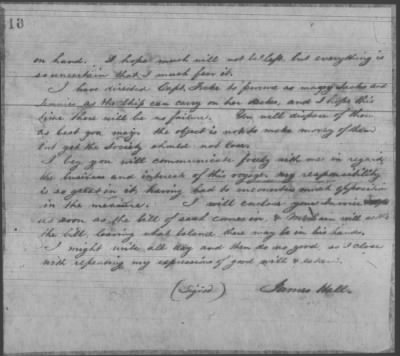 18
on hand. I hope much will not be left, but everything is
so uncertain that I much fear it.
I have directed Capt. to procure as many Jacks and
Jennies as the Ship can carry on her decks, and I hope this
time there will be no failure. You will dispose of them
as best you may. The object is not to make money of them
but yet the Society should not lose.
I beg you will communicate freely with me in regard
the business and interest of this voyage, my responsibility
is so great in it, having had to encounter much opposition
in the measure. I will enclose your Invoice
as soon as the bill of comes on, & will
the bill, leaving what balance there may be in his hands.
I might write all day and then do no good, so I close
with repeating my expressions of good will & esteem.
(Signed) James Hall.